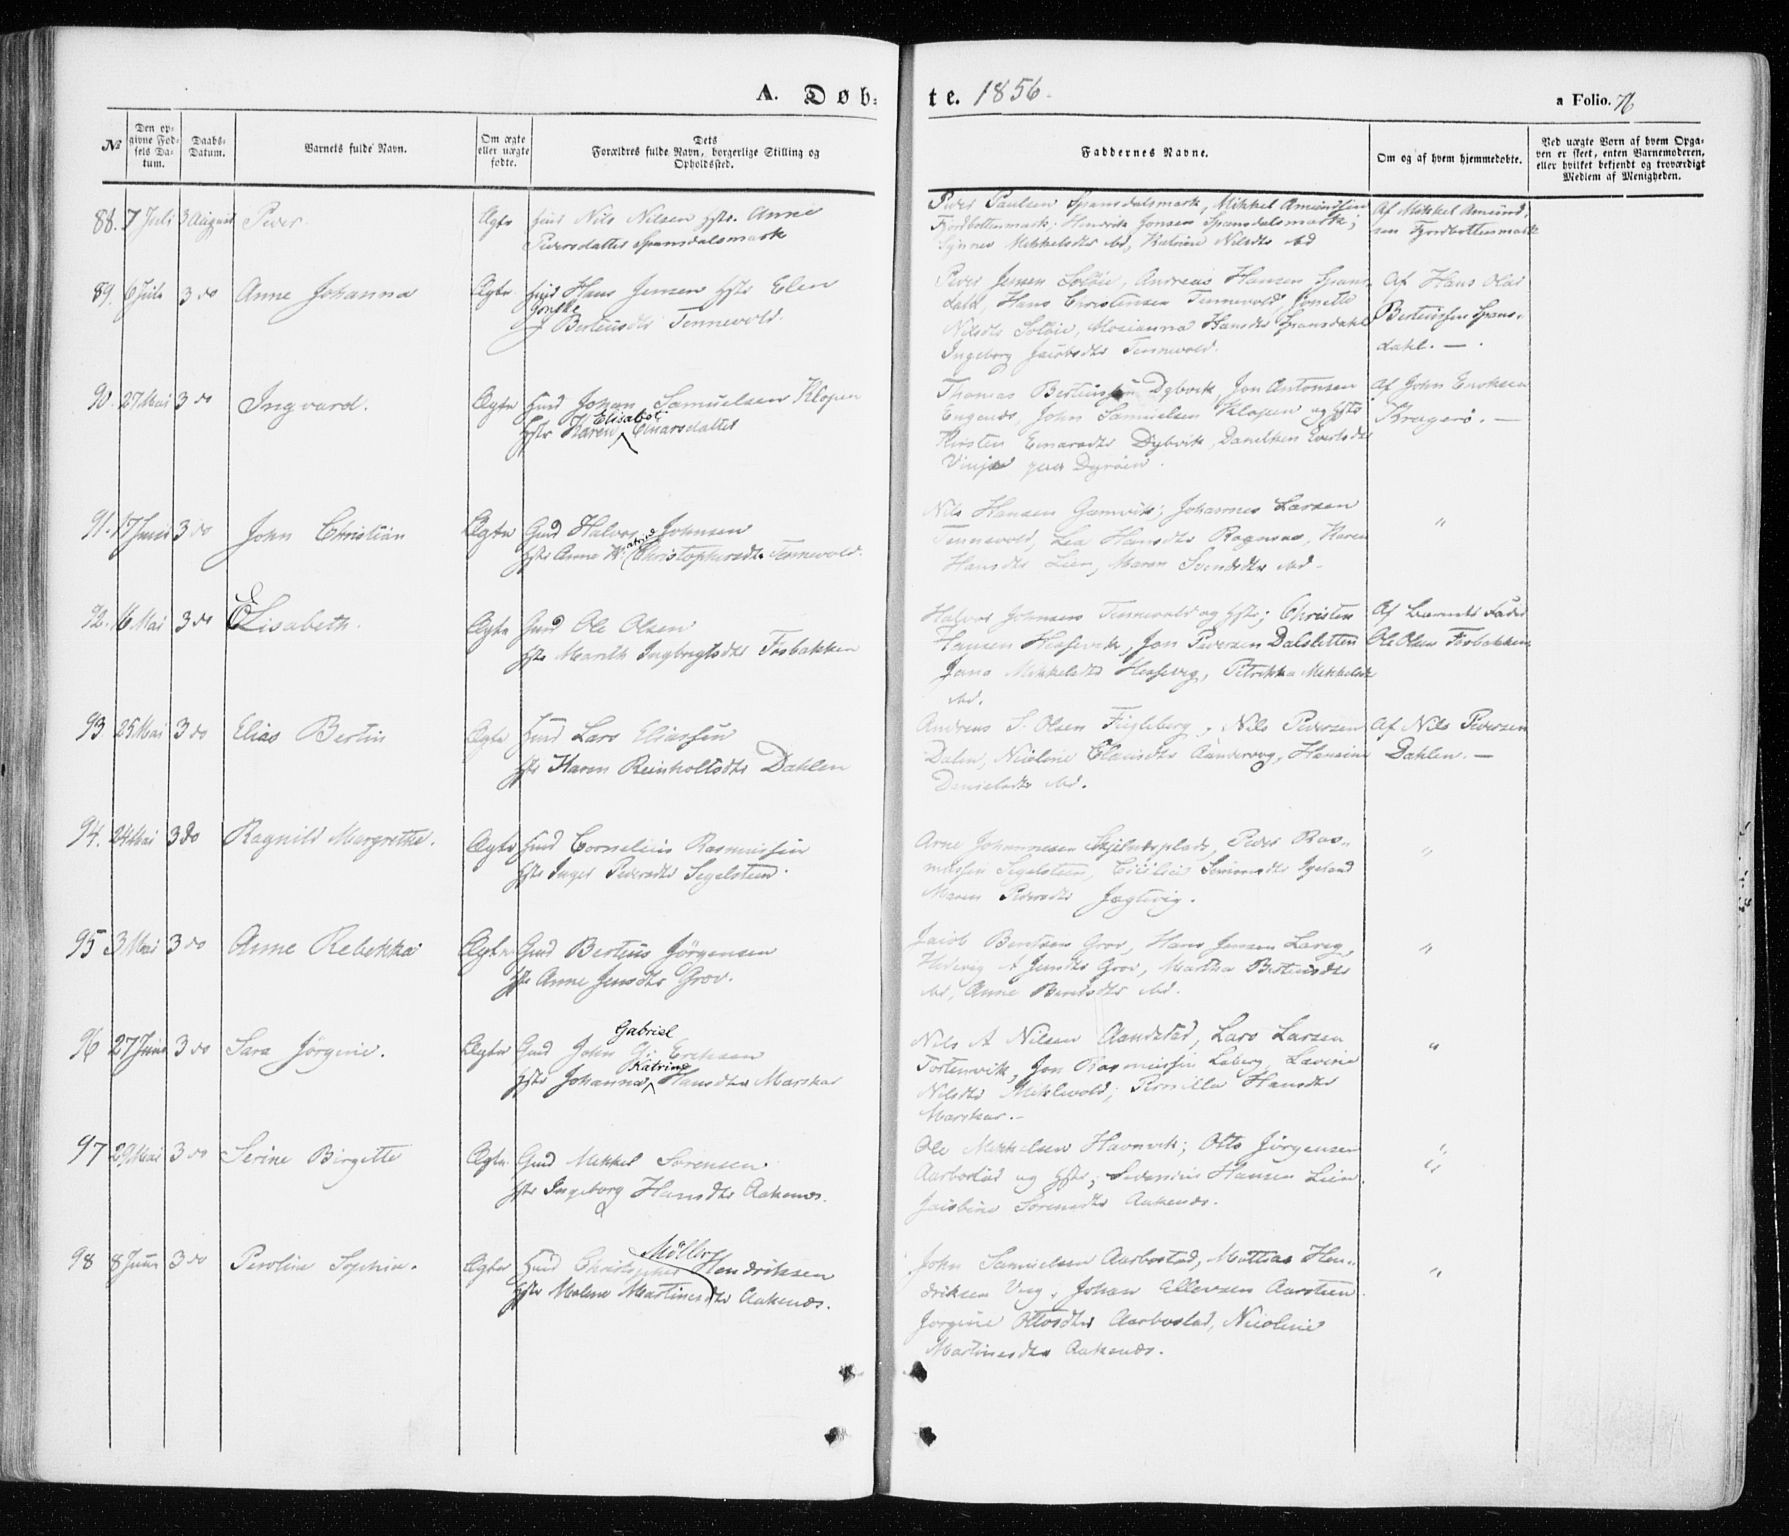 A. Døb-
te. 1856.
a Folio. 76
№
Den op-
givne Fød-
sels Da-
tum.
Daabs-
Datum.
Barnets fulde Navn.
Om ægte
eller uægte
fødte.
Dets
Forældres fulde Navn, borgerlige Stilling og
Opholdssted.
Faddernes Navne.
Om og af hvem hjemmedøbte.
Ved uægte Børn af hvem Opga-
ven er skeet, enten Barnemoderen,
eller hvilket bekjendt og troværdigt
Medlem af Menigheden.
88. 7 Juli 3 August Peder Ægte Huusd Nils Nilsen Hstr. Anne
Pedersdatter Spansdalsmark
Peder Paulsen Spansdalsmark, Mikkel Amundsen
Fjordbottenmark, Henrik Jonsen Spansdalsmark;
Mikkelsdtr ibd, Katrine Nilsdtr ibd
Af Mikkel Amund-
sen Fjordbottenmark
89. 6 Juli 3 do Anne Johanna Ægte Huusd Hans Jensen Hstr Elen
Bertheusdtr Tennevold.
Peder Jensen Solbie, Andreas Hansen Spans-
dahl, Hans Christensen Tennevold, Jonetta
Nilsdtr Solbie, Mosianna Hansdtr Spansdahl
Ingeborg Jacobsdtr Tennevold.
Af Hans Olai
Berteussen Spans-
dahl. —
90. 27 Mai 3 do Ingvard. Ægte Huusd Johan Samuelsen Klopen
Elisabet
Hstr Karen Einarsdatter
Thomas Berteussen Dybvik, Jon Antonsen
Engenes, John Samuelsen Klopen og Hstr
Kirsten Einarsdtr Dybvik, Evertsdtr
Vinje paa Dyrøen.
Af John Eriksen
Kragerø. —
91. 17 Juni 3 do John Christian Ægte Gmd Halvor Johnsen
Hstr Anne Katrine Christophersdtr Tennevold.
Nils Hansen Gamvik; Johannes Larsen
Tennevold, Lea Hansdtr Rognsaa, Karen
Hansdtr Lien, Maren Svendsdtr ibd.
"
92. 16 Mai 3 do Elisabeth. Ægte Gmd Ole Olsen
Hstr Marith Ingbrigtsdtr Fosbakken
Halvor Johnsen Tennevold og Hstr; Christen
Hansen Hessevik, Jon Pedersen Dalsletten
Jana Mikkelsdtr Hessevig, Petrikka Mikkelsdtr
ibd.
Af Barnets Fader
Ole Olsen Fosbakken
93 25 Mai 3 do Elias Bertin Ægte Huusd Lars Eliassen
Hstr Karen Reinholtsdtr Dahlen
Andreas S. Olsen Fugleberg, Nils Pedersen
Dalen, Nicoline Elansdtr Aandervog, Hansine
Danielsdtr ibd.
Af Nils Pedersen
Dahlen. —
94. 24 Mai 3 do Ragnild Margrethe. Ægte Huusd Cornelius Rasmussen
Hstr Inger Pedersdtr Segelsteen.
Arne Johannessen Skjelnesplads, Peder Ras-
mussen Segelsteen, Cicilia Simonsdtr
Maren Pedersdtr Jægtvig.
"
95 3 Mai 3 do Anne Rebekka Ægte Gmd Berteus Jørgensen
Hstr Anne Jensdtr Grov.
Jacob Bentsen Grov, Hans Jensen Lavig,
Hedevig A Jensdtr Grov, Martha Berteusdtr
ibd, Anne Bentsdtr ibd.
"
96 27 Juni 3 do Sara Jørgine. Ægte Gmd John Gabriel Eriksen
Katrine
Hstr Johanna Hansdtr Marskar
Nils A Nilsen Aandstad, Lars Larsen
Tortenvik, Jon Rasmussen Laberg, Lavine
Nilsdtr Mikkevold; Pernille Hansdtr
Marskar.
"
97 29 Mai 3 do Serine Birgette Ægte Gmd Mikkel Sørensen
Hstr Ingeborg Hansdtr Aakenæs.
Ole Mikkelsen Havnvik; Otto Jørgensen
Aarbostad og Hstr; Hansen Lien.
Jacobine Sørensdtr Aakenæs.
"
98 8 Juni 3 do Peroline Sophia. Ægte Huusd Christopher Møller Hendriksen
Hstr Malene Martinesdtr Aakenæs.
John Samuelsen Aarbostad, Mattias Hen-
driksen Vug, Johan Ellevsen Aarsteen
Jørgine Ottosdtr Aarbostad, Nicoline
Martinesdtr Aakenæs.
"